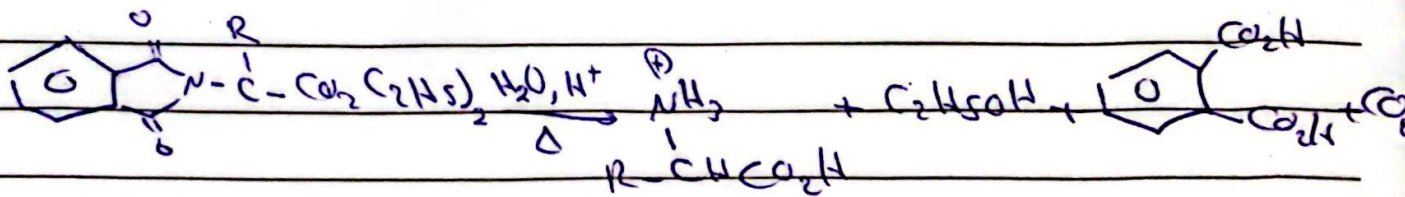 O R
N - C - CO2 C2H5)2 H2O, H+ ⊕NH3 + C2H5OH + CO2H CO2H + CO2
O Δ
R - CHCO2H